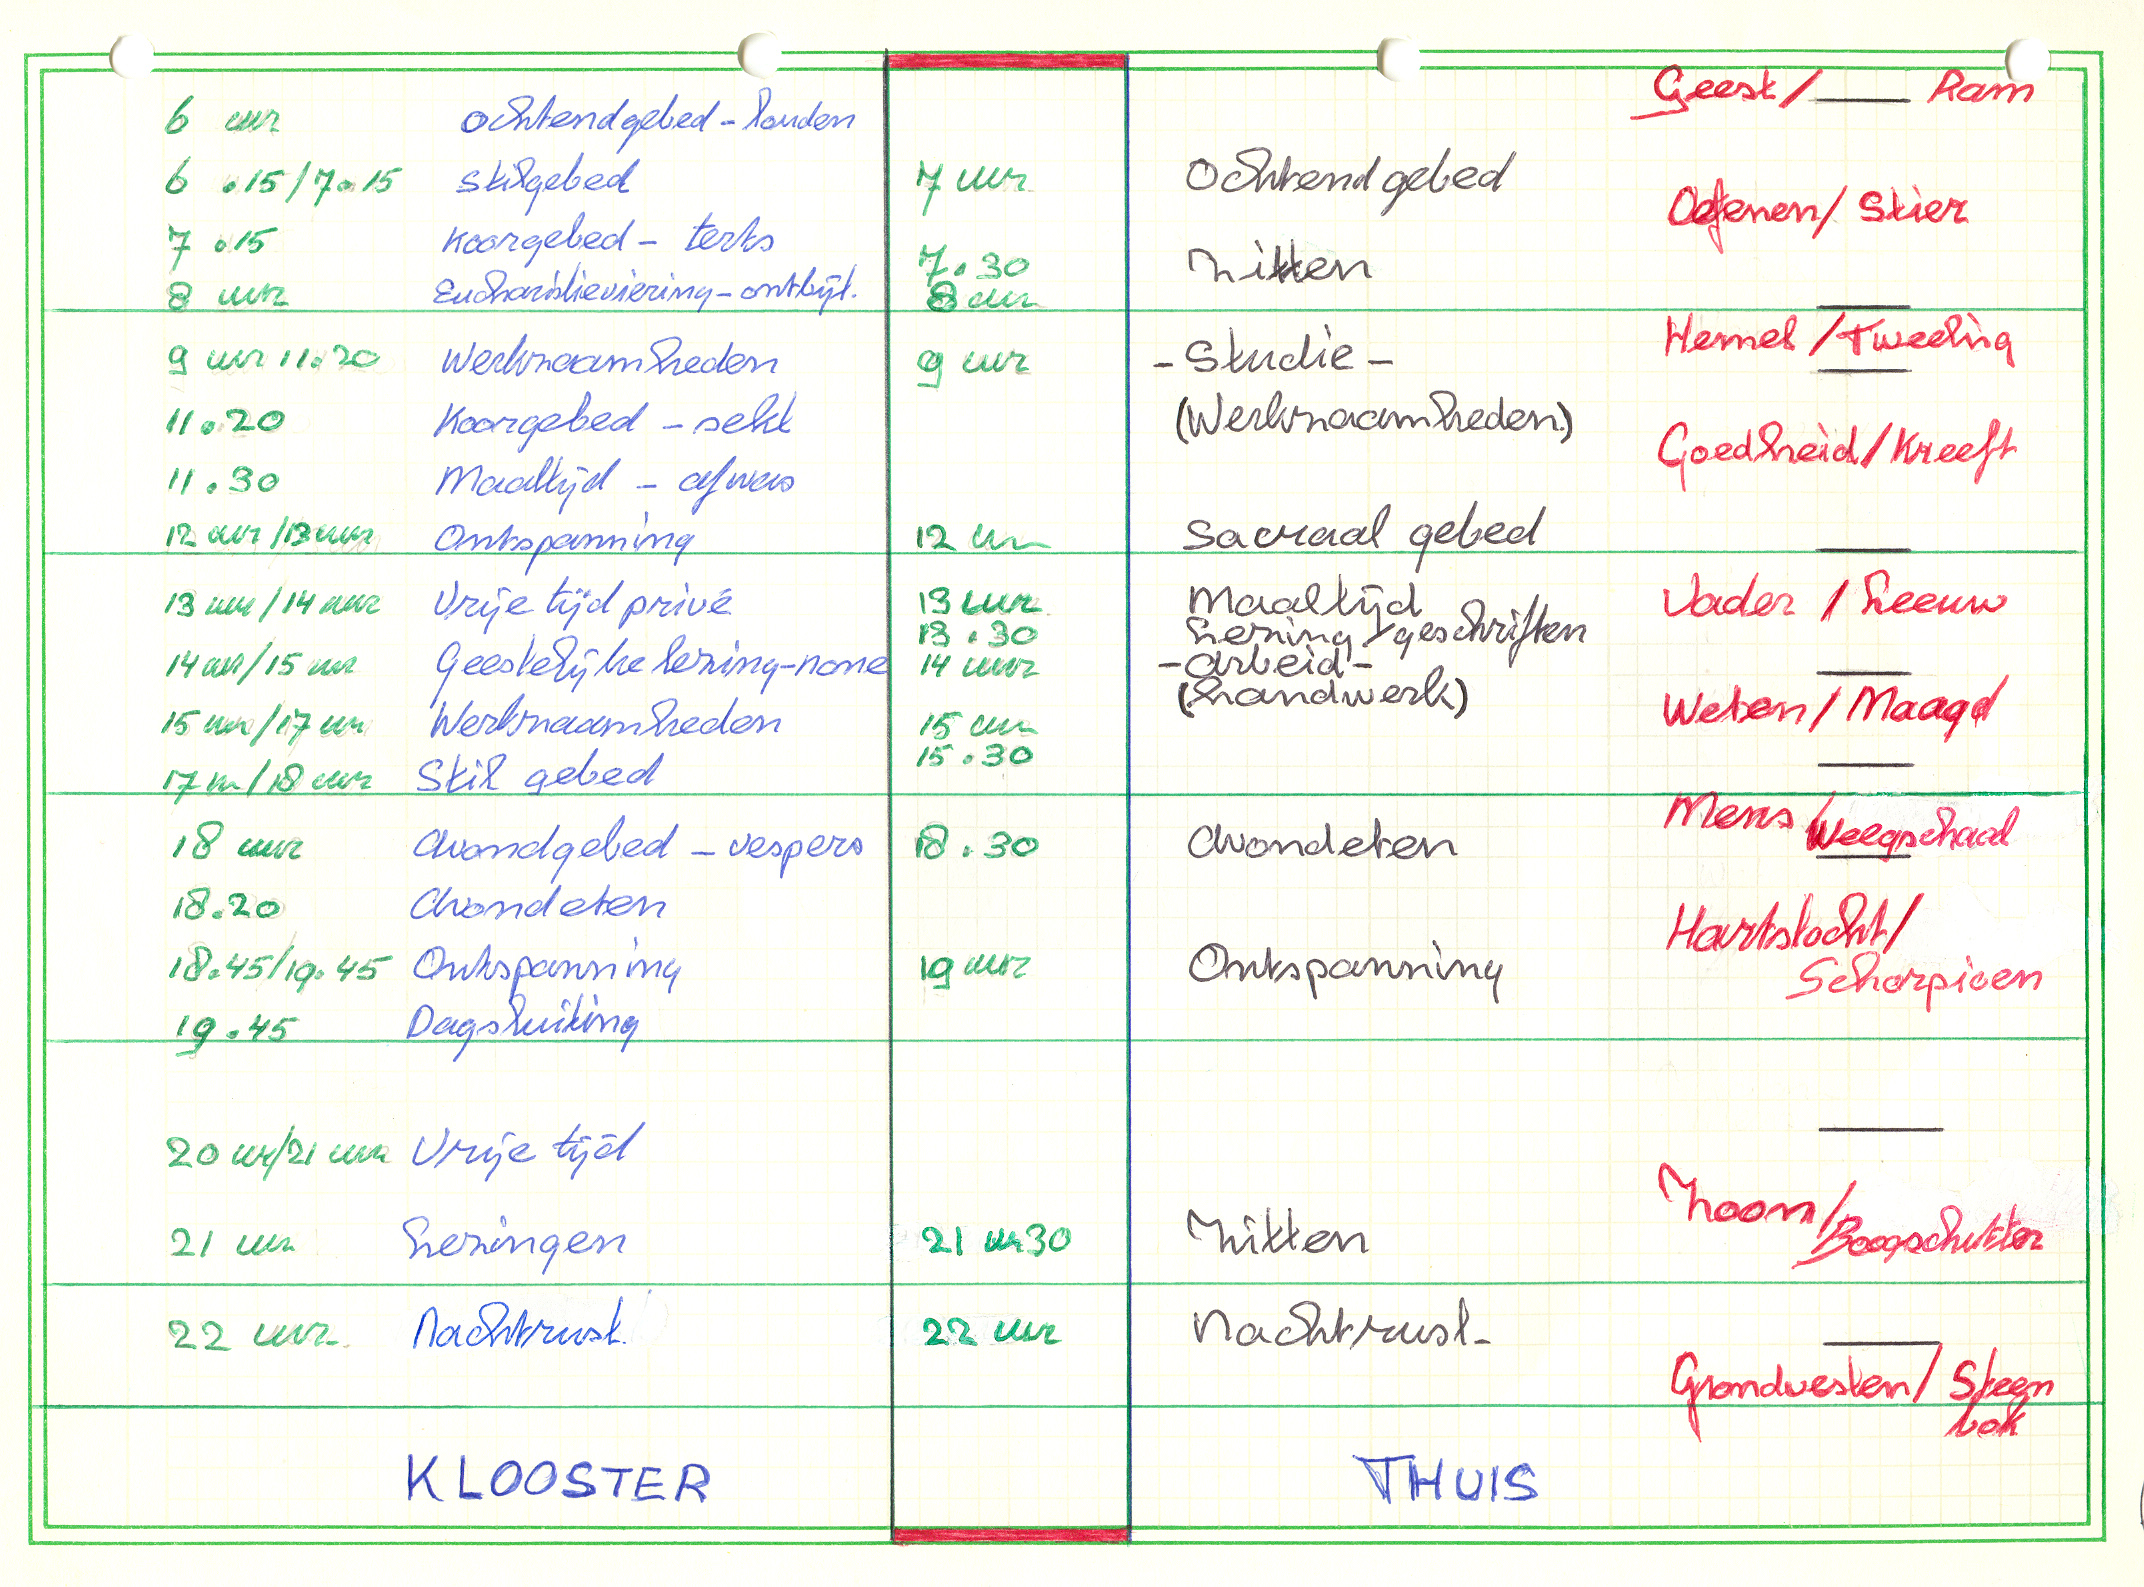 Geest/ Ram
6 uur ochtendgebed - lauden
6 .15/7.15 stilgebed 7 uur Ochtendgebed
Oefenen/ Stier
7 .15 Koorgebed - terts
7.30 Zitten
8 uur Eucharistieviering - ontbijt. 8 uur
Hemel /Tweeling
9 uur 11.20 Werkzaamheden 9 uur - Studie -
11.20 Koorgebed - sekt (Werkzaamheden)
Goedheid/Kreeft
11.30 Maaltijd - afwas
12 uur /13 uur Ontspanning 12 uur Sacraal gebed
13 uur /14 uur Vrije tijd privé 13 uur Maaltijd Vader / Leeuw
13.30 Lezing geschriften
14 uur/15 uur Geestelijke lezing-none 14 uur -arbeid-
(handwerk)
15 uur/17 uur Werkzaamheden 15 uur Weten/ Maagd
15.30
17 uur/18 uur Stil gebed
Mens/ Weegschaal
18 uur Avondgebed - vespers 18.30 Avondeten
18.20 Avondeten
Hartstocht/
18.45/19.45 Ontspanning 19 uur Ontspanning Schorpioen
19.45 Dagsluiting
20 uur/21 uur Vrije tijd
Zoom/
21 uur Lezingen 21 uur 30 Zitten Boogschutter
22 uur Nachtrust. 22 uur Nachtrust-
Grondvesten/ Steen
bok
KLOOSTER THUIS